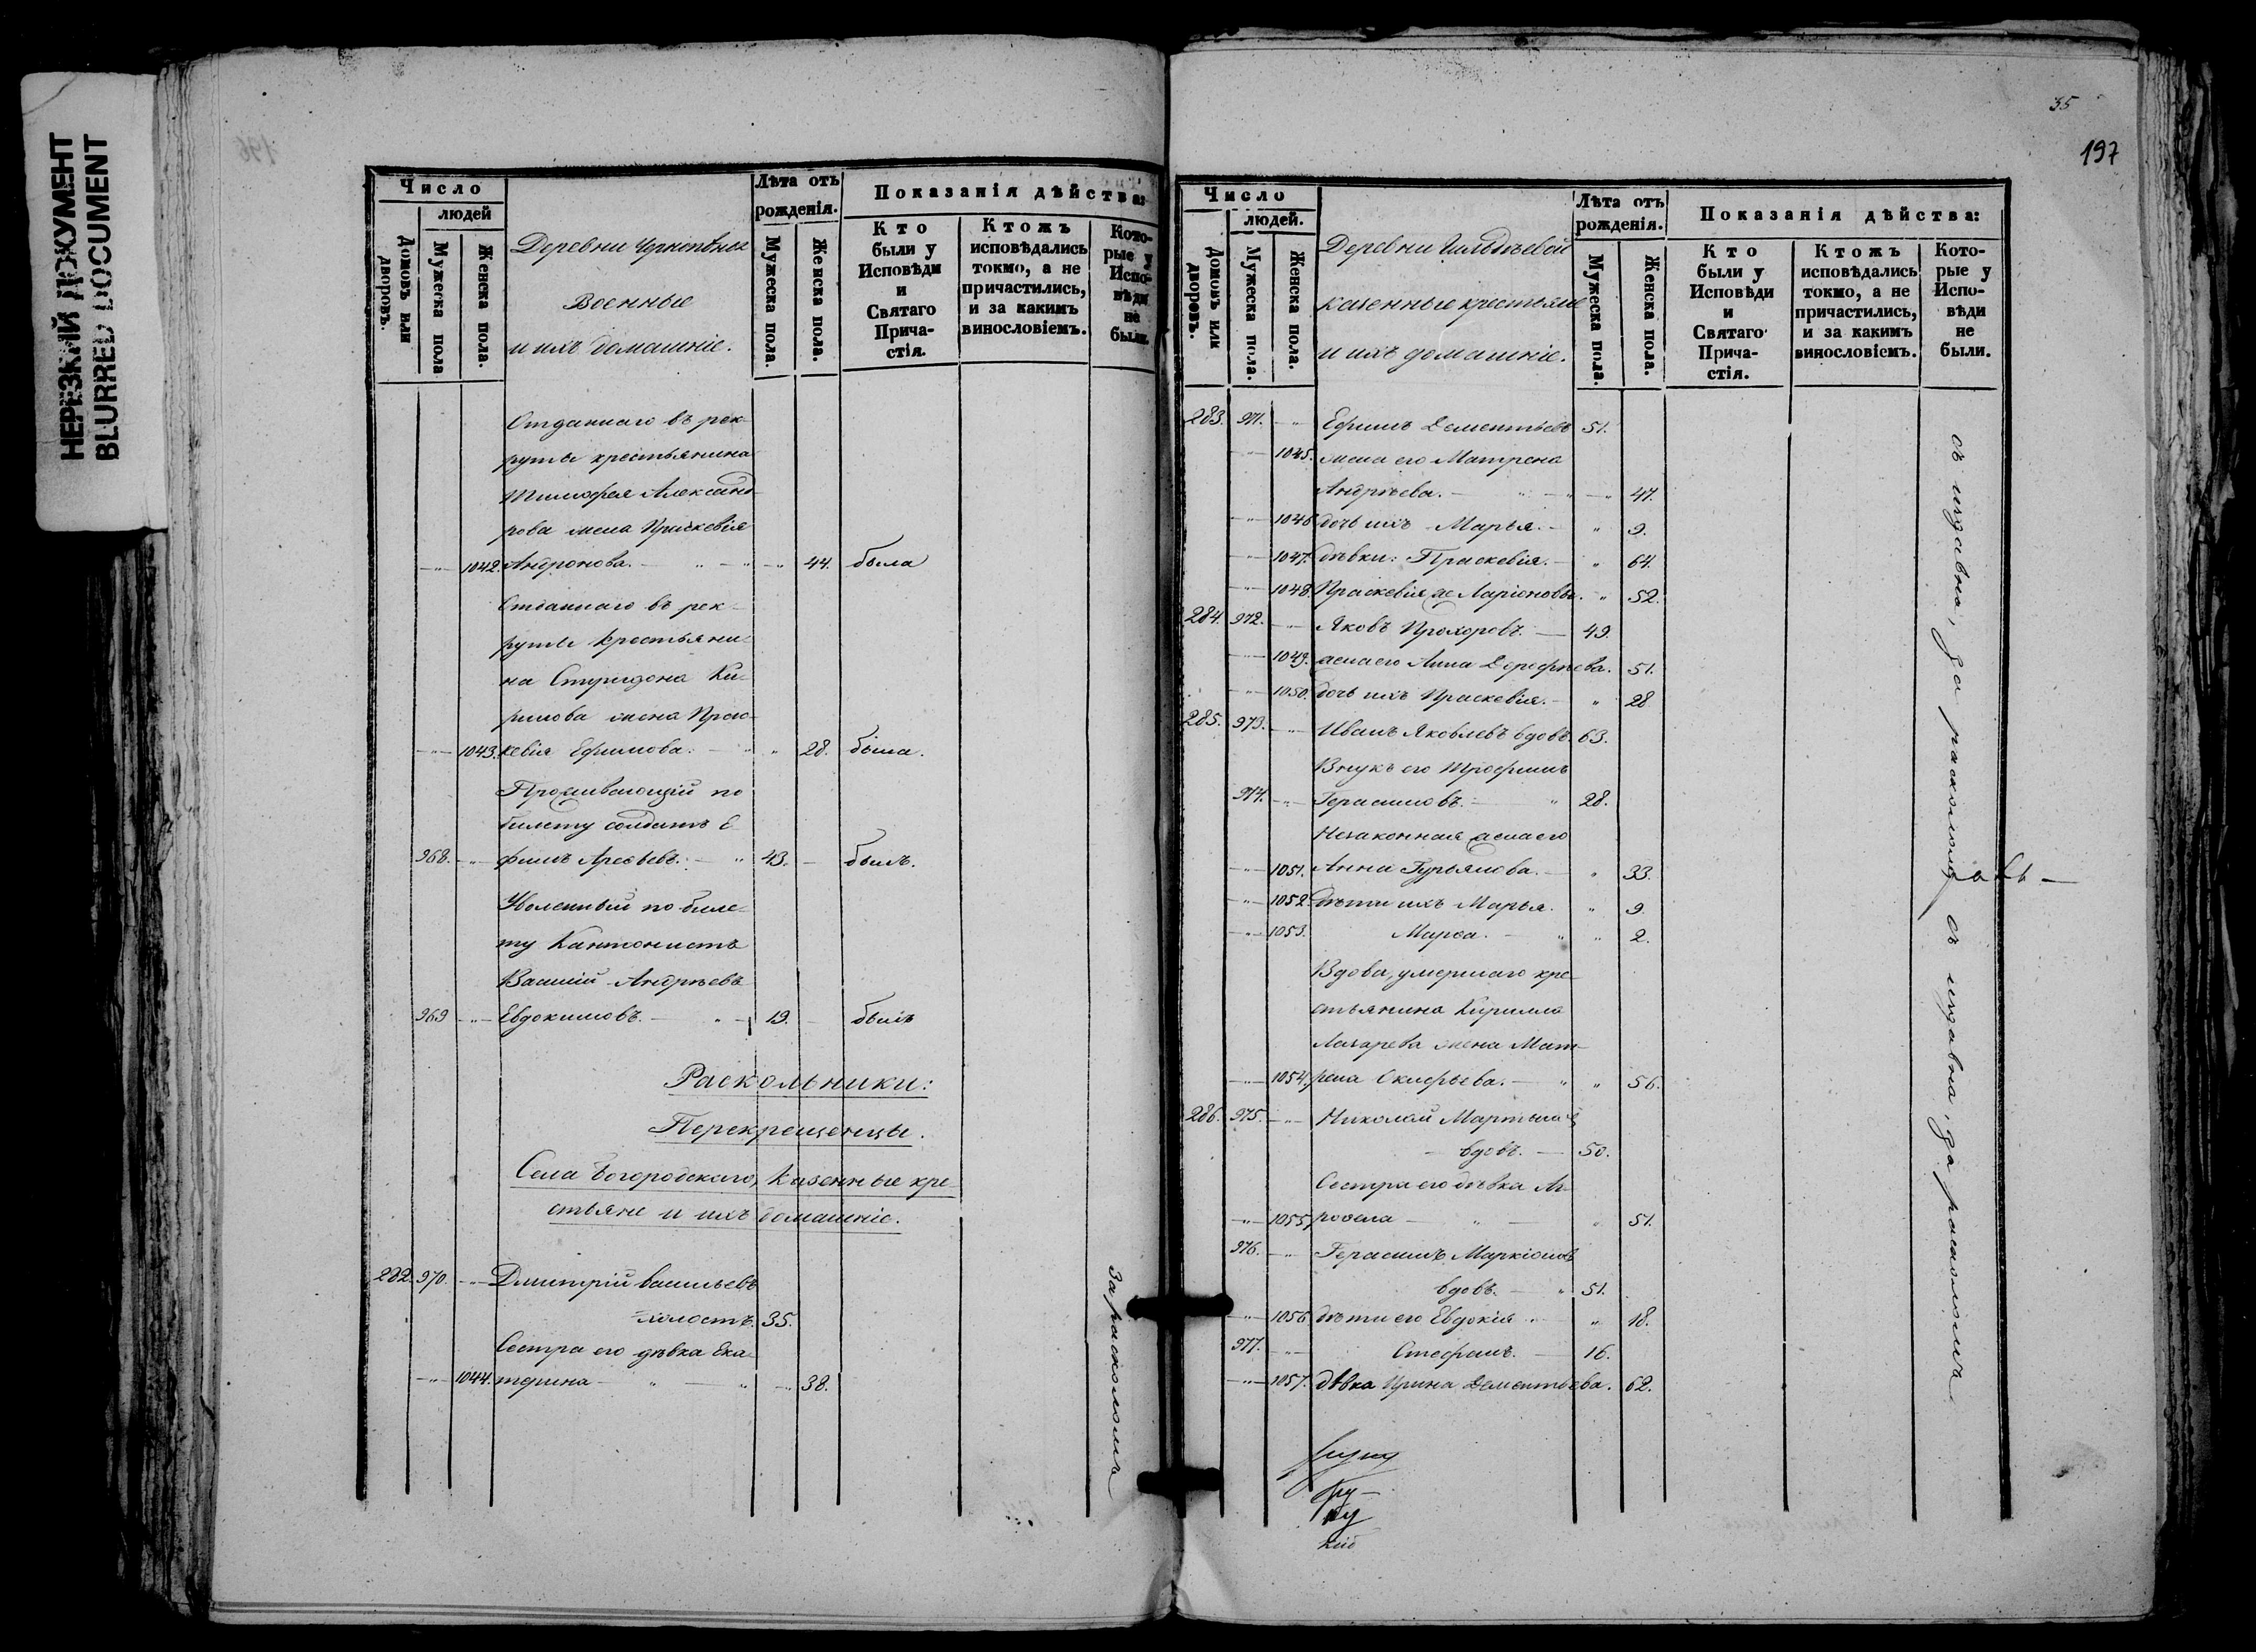 НЕРЕЗКИЙ ДОКУМЕНТ
BLURRED DOCUMENT
196
Число
людей
Домовъ или дворовъ.
Мужеска пола
Женска пола.
Деревни
Военные
и ихъ домашніе.
Лѣта отъ рожденія.
Мужеска пола.
Женска пола.
Показанія дѣйства:
Кто были у Исповѣди и Святаго Прича-стія.
Ктожъ исповѣдались токмо, а не причастились, и за какимъ винословіемъ.
Кото-рые у Испо-вѣди не были.
Отданнаго въ рек-
руты крестьянина
Тимофея Александ-
рова жена Праскевія
1042. Андронова. 44. была
Отданнаго въ рек-
руты крестьяни-
на Спиридона Ки-
рилова жена Прас-
1043. кевія Ефимова. 28. была.
Проживающій по
билету солдатъ Е-
968. фимъ 43. былъ.
Уволенный по биле-
ту Кантонистъ
Василій Андреевъ
969 Евдокимовъ. 19. былъ
Раскольники:
Перекрещенцы.
Села Богородскаго, Казенные кре-
стьяне и ихъ домашніе.
282. 970. Дмитрій Васильевъ
холостъ. 35.
Сестра его дѣвка Ека-
1044. терина 38.
За расколомъ
35
197
Число
людей.
Домовъ или дворовъ.
Мужеска пола.
Женска пола.
Деревни
казенные крестьяне
и ихъ домашніе.
Лѣта отъ рожденія.
Мужеска пола.
Женска пола.
Показанія дѣйства:
Кто были у Исповѣди и Святаго Прича-стія.
Ктожъ исповѣдались токмо, а не причастились, и за какимъ винословіемъ.
Кото-рые у Испо-вѣди не были.
283. 971. Ефимъ Дементьевъ 51.
1045. жена его Матрена
Андреева. 47.
1046 дочь ихъ Марья. 9.
1047. дѣвки: Праскевія. 64.
1048. Праскевія же Ларіоновы. 52.
284. 972. Яковъ Прохоровъ. 49.
1049. жена его Анна Дорофѣева. 51.
1050. дочь ихъ Праскевія. 28
285. 973. Иванъ Яковлевъ вдовъ. 63.
Внукъ его Трофимъ
974. Герасимовъ. 28.
Незаконная жена его
1051. Анна Гурьянова. 33.
1052. Дѣти ихъ Марья. 9.
1053. Марѳа. 2.
Вдова, умершаго кре-
стьянина Кирилла
Лазарева жена Мат-
1054. рена 56.
286. 975. Николай
вдовъ. 50.
Сестра его дѣвка
1055. 51.
976. Герасимъ Маркіоновъ
вдовъ. 51.
1056 дѣти его Евдокія 18.
977. Стефанъ. 16.
1057. дѣвка Ирина Дементьева. 62.
съ издавна, за расколомъ
съ издавна, за расколомъ